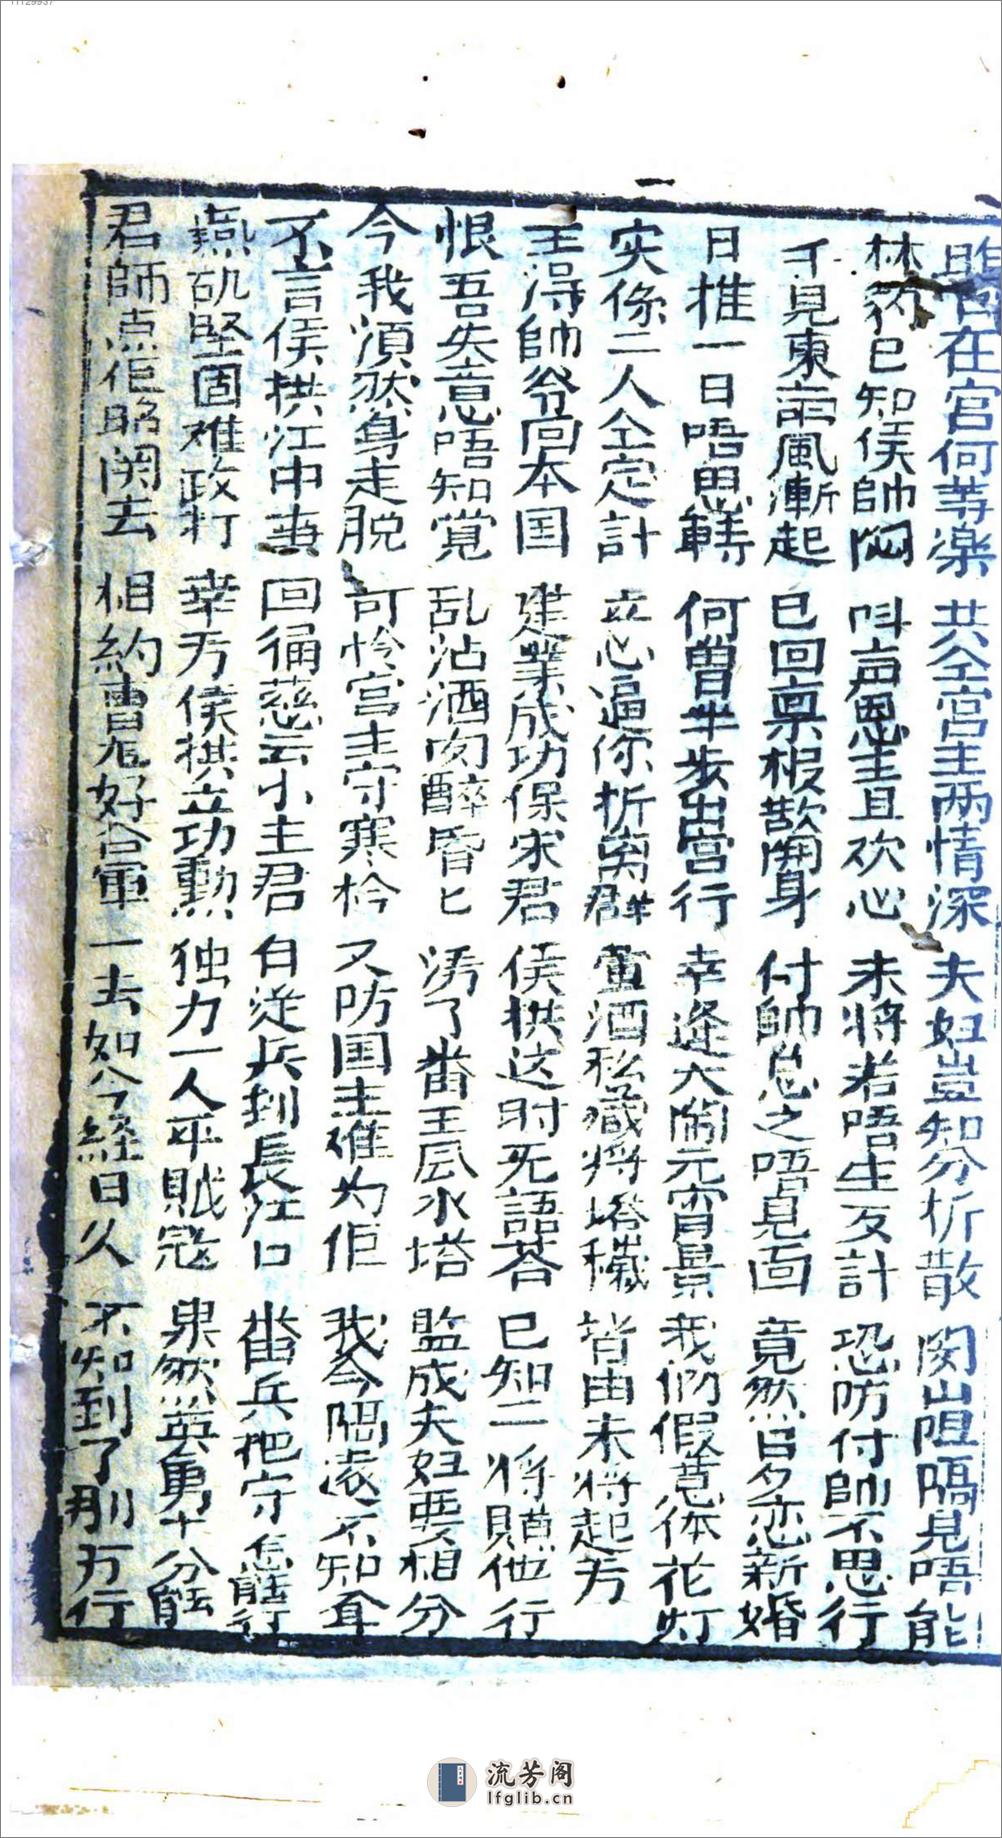 11129937
昨日在宫何䓁楽 共仝宫主两情深 夫妇豈知分析散 関山阻隔見唔能
林 已知侯帥悶 呌声恩主且欢心 未将若唔生反計 恐防付帥不思行
不見東 風漸起 已回禀报散開身 付帥总之唔見面 竟然日夕恋新婚
日推一日唔思轉 何曽半步出宫行 幸逢大閙元宵景 我們假意体花灯
实係二人仝定計 立心逼你折离群 賣酒私藏将塔穢 皆由未将起方
主淂帥爷回本囯 建業成功保宋君 侯拱这时死語荅 已知二将賺他行
恨吾失意唔知覚 乱沾酒肉醉昏匕 涜了番王风水塔 監成夫妇要相分
今我須然身走脱 可怜宫主守寒衾 又防国主难为佢 我今隔遠不知耳
不言侯拱江中事 回俑慈云小主君 自从兵到長江口 番兵把守怎能行
燕矶堅固难攻打 幸方侯拱立功勲 独力一人平賊寇 果然英勇十分能
君師点佢昭関去 相約曹兄好合軍 一去如今経日久 不知到了那方行
流芳阁
lfglib.cn